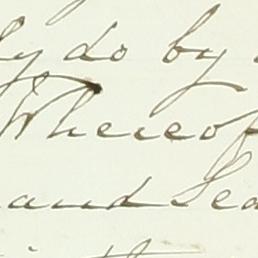 ly do by
Whereof
and Sea